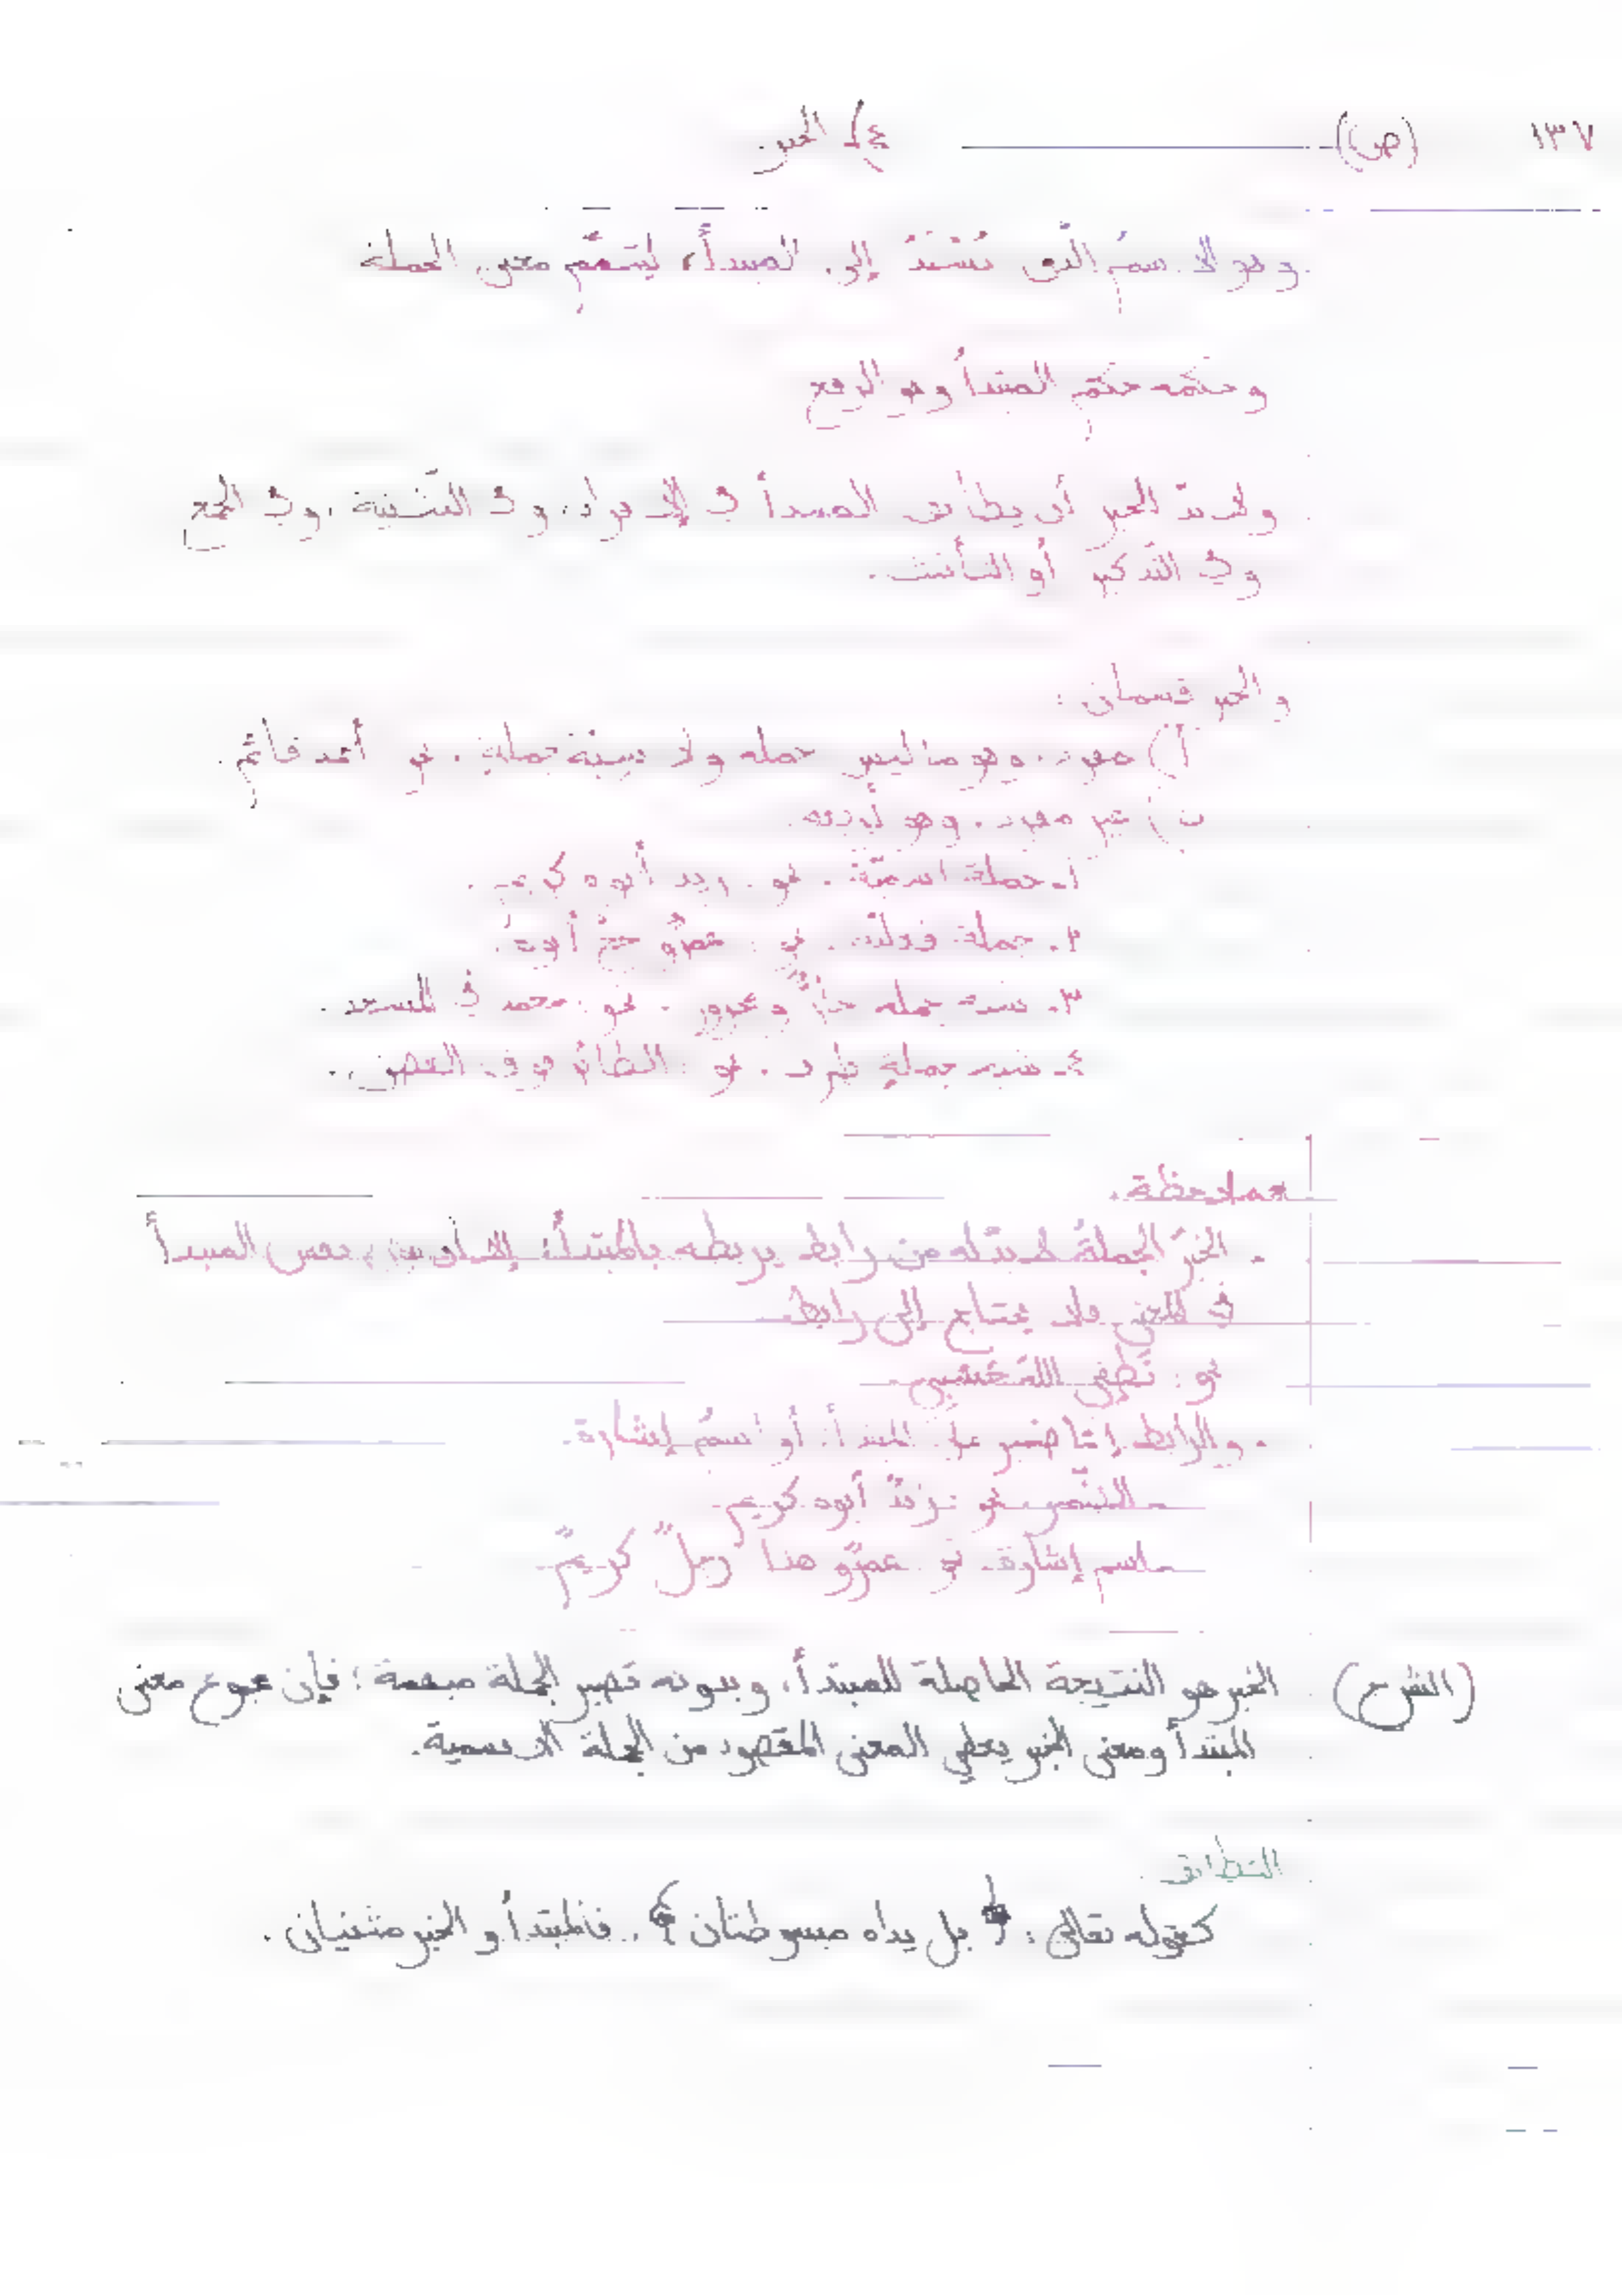 ١٣٧ (ص) ٤) الخبر
وهو الاسمُ الّذي يُسْنَدُ إلى المبتدأ، ليتمّم معنى الجملة
وحكمه حكم المبتدأ وهو الرفع
ولابدّ للخبر أن يطابق المبتدأ في الإفراد، وفي التّثنية، وفي الجمع
وفي التّذكير أو التأنيث.
والخبر قسمان:
أ) مفرد. وهو ما ليس جملة ولا شبه جملةٍ. نحو أحمد قائم.
ب) غير مفرد. وهو أربعة
١. جملة اسميّة. نحو. زيد أبوه كريم.
٢. جملة فعليّة. نحو: عمرٌو حجّ أبوهُ.
٣. شبه جملة جارٌّ ومجرور. نحو: محمد في المسجد.
٤. شبه جملةٍ ظرف. نحو: الطائر فوق الغصن.
ملاحظة.
. الخبرُ الجملةُ لابدّ له من رابط يربطه بالمبتدأ؛ إلا إن نفس المبتدأ
في المعنى فلا يحتاج إلى رابط.
نحو: نُطقي الله حَسْبِي.
. والرابط إمّا ضمير المبتدأ، أو اسمُ إشارة.
- الضّمير نحو: زيدٌ أبوه كريم
- اسم إشارة. نحو: عمرٌو هذا رجلٌ كريمٌ.
(الشرح) الخبر هو النتيجة الحاصلة للمبتدأ، وبدونه تصير الجملة مبهمة؛ فإن مجموع معنى
المبتدأ ومعنى الخبر يعطي المعنى المقصود من الجملة الاسمية.
التطابق
كقوله تعالى: ﴿بل يداه مبسوطتان﴾. فالمبتدأ والخبر مثنيان.